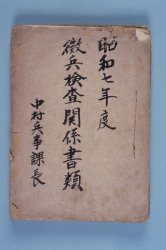 昭和七年度
徴兵検査関係書類
中村兵事課長